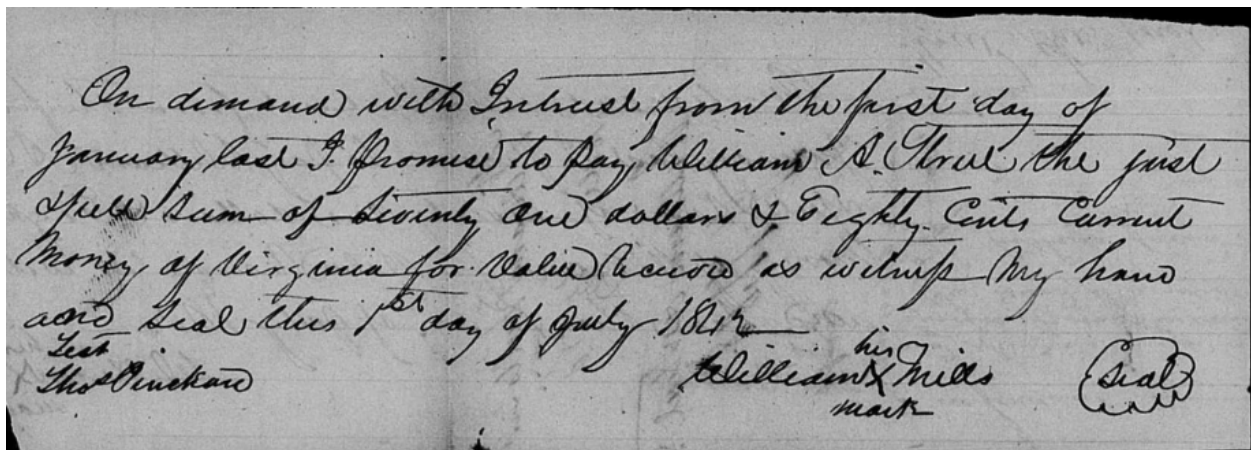 On demand with Intrest from the first day of
January last I promise to pay William A. Street the just
& full sum of Seventy One dollars & Eighty Cents Current
Money of Virginia for Value Received as witness My hand
and Seal this 1st day of July 184
Test his
Thos Pinckard William X Mills Seal
mark